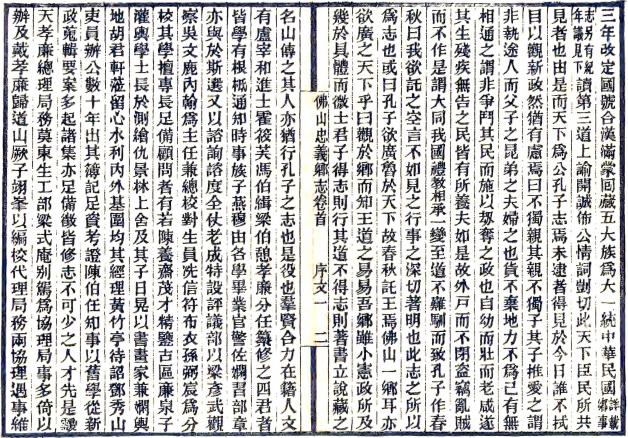 三年改定國號合漢滿蒙回藏五大族爲大一統中華民國詳載鄉事
志別有紀年議見下讀第三道上諭開誠佈公情詞剴切此天下臣民所共
見者也由是而天下爲公孔子志焉未逮者得見於今日誰不拭
目以觀新政然猶有慮焉曰不獨親其親不獨子其子推愛之謂
非執途人而父子之昆弟之夫婦之也貨不棄地力不爲己有無
相通之謂非爭鬥其民而施以刼奪之政也自幼而壯而老咸遂
其生殘疾無告之民皆有所養夫如是故外戸而不閉盜竊亂賊
而不作是謂大同我國禮教相承一變至道不難馴而致孔子作春
秋曰我欲託之空言不如見之行事之深切著明也此志之所以
爲志也或曰孔子欲廣魯於天下故春秋託王焉佛山一鄉耳亦
欲廣之天下乎曰觀於鄉而知王道之易易吾鄉雖小憲政所及
幾於具體而微士君子得志則行其道不得志則著書立說藏之
佛山忠義鄉志卷首 序文一 二
名山傳之其人亦猶行孔子之志也是役也羣賢合力在籍人文
有盧宰和進士霍筱芙馮伯緝梁伯憩孝廉分任纂修之四君者
皆學有根柢通知時事族子燕穆由各學畢業官警佐嫻習部章
亦與於斯選又以諮諭諮度全仗老成特設評議部以梁彥武觀
察吳文鹿内翰爲主任兼總校對生員冼信符布衣孫弼宸爲分
校其學壇專長足備顧問者有若陳養齋茂才精鑒古區廉泉子
灌輿學士長於測繪仇景林上舍及其子日晃以書畫家兼嫻輿
地胡君軒蒞留心水利内外基圍均其經理黄竹亭待詔鄧秀山
吏員辦公數十年出其簿記足資考證陳伯任知事以舊學從新
政蒐輯要案多起諸集亦足備徵皆修志不可少之人才先是
天孝廉總理局務莫東生工部梁式庵別駕爲協理局事多倚以
辦及戴孝廉歸道山厥子翊峯以編校代理局務兩協理遇事維